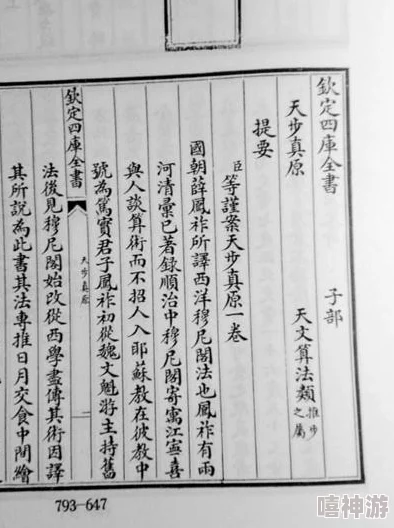 欽定四庫全書 子部
天步真原 天文算法類推步之屬
提要
臣等謹案天步真原一卷
國朝薛鳳祚所譯西洋穆尼閣法也鳳祚有兩
河清彙已著錄順治中穆尼閣寄寓江寧喜
與人談算術而不招人入耶蘇教在彼教中
號為篤實君子鳳祚初從魏文魁游主持舊
法後見穆尼閣始改從西學盡傳其術因譯
其所說為此書其法專推日月交食中間繪
欽定四庫全書
天步真原
一
793-647
嘻神游